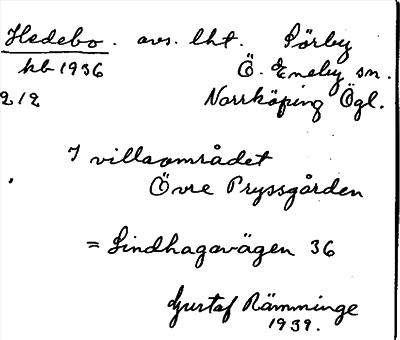 Hedebo. avs. lht. Sörby
kb 1936 Ö. Eneby sn.
212 Norrköping Ögl.
I villaområdet
Övre Pryssgården
= Lindhagavägen 36
Gustaf Rämminge
1939.